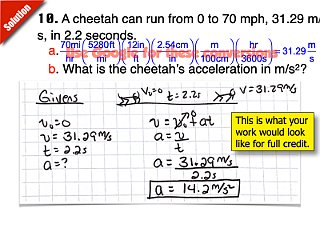 Solution
10. A cheetah can run from 0 to 70 mph, 31.29 m/
s, in 2.2 seconds.
a. Use Google for these conversions
70mi/hr (5280ft/mi) (12in/ft) (2.54cm/in) (m/100cm) (hr/3600s) = 31.29 m/s
b. What is the cheetah's acceleration in m/s²?
Givens
V₀=0 t=2.2s V=31.29m/s
v₀=0
v=31.29m/s
t=2.2s
a=?
v=v₀⁰+at
a=v/t
a=31.29m/s / 2.2s
a=14.2m/s²
This is what your
work would look
like for full credit.